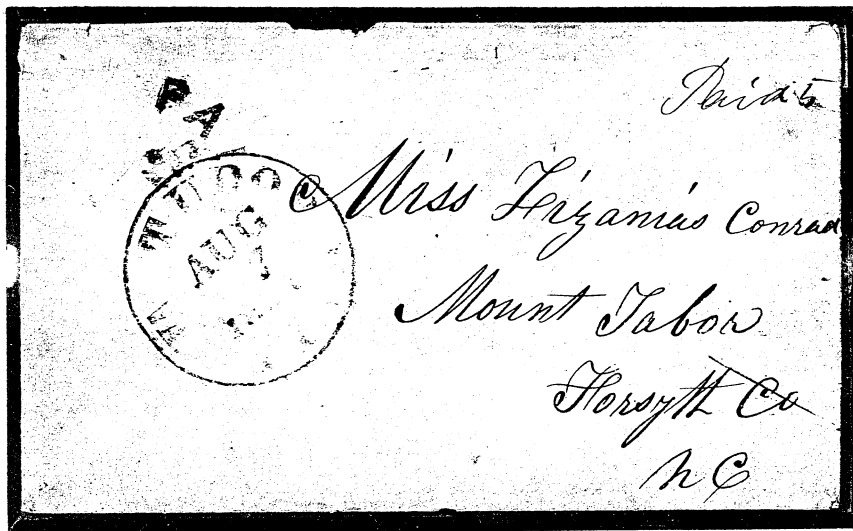 Paid 5
PA
AUG
7
Miss Lizanias Conrad
Mount Tabor
Forsyth Co
N C